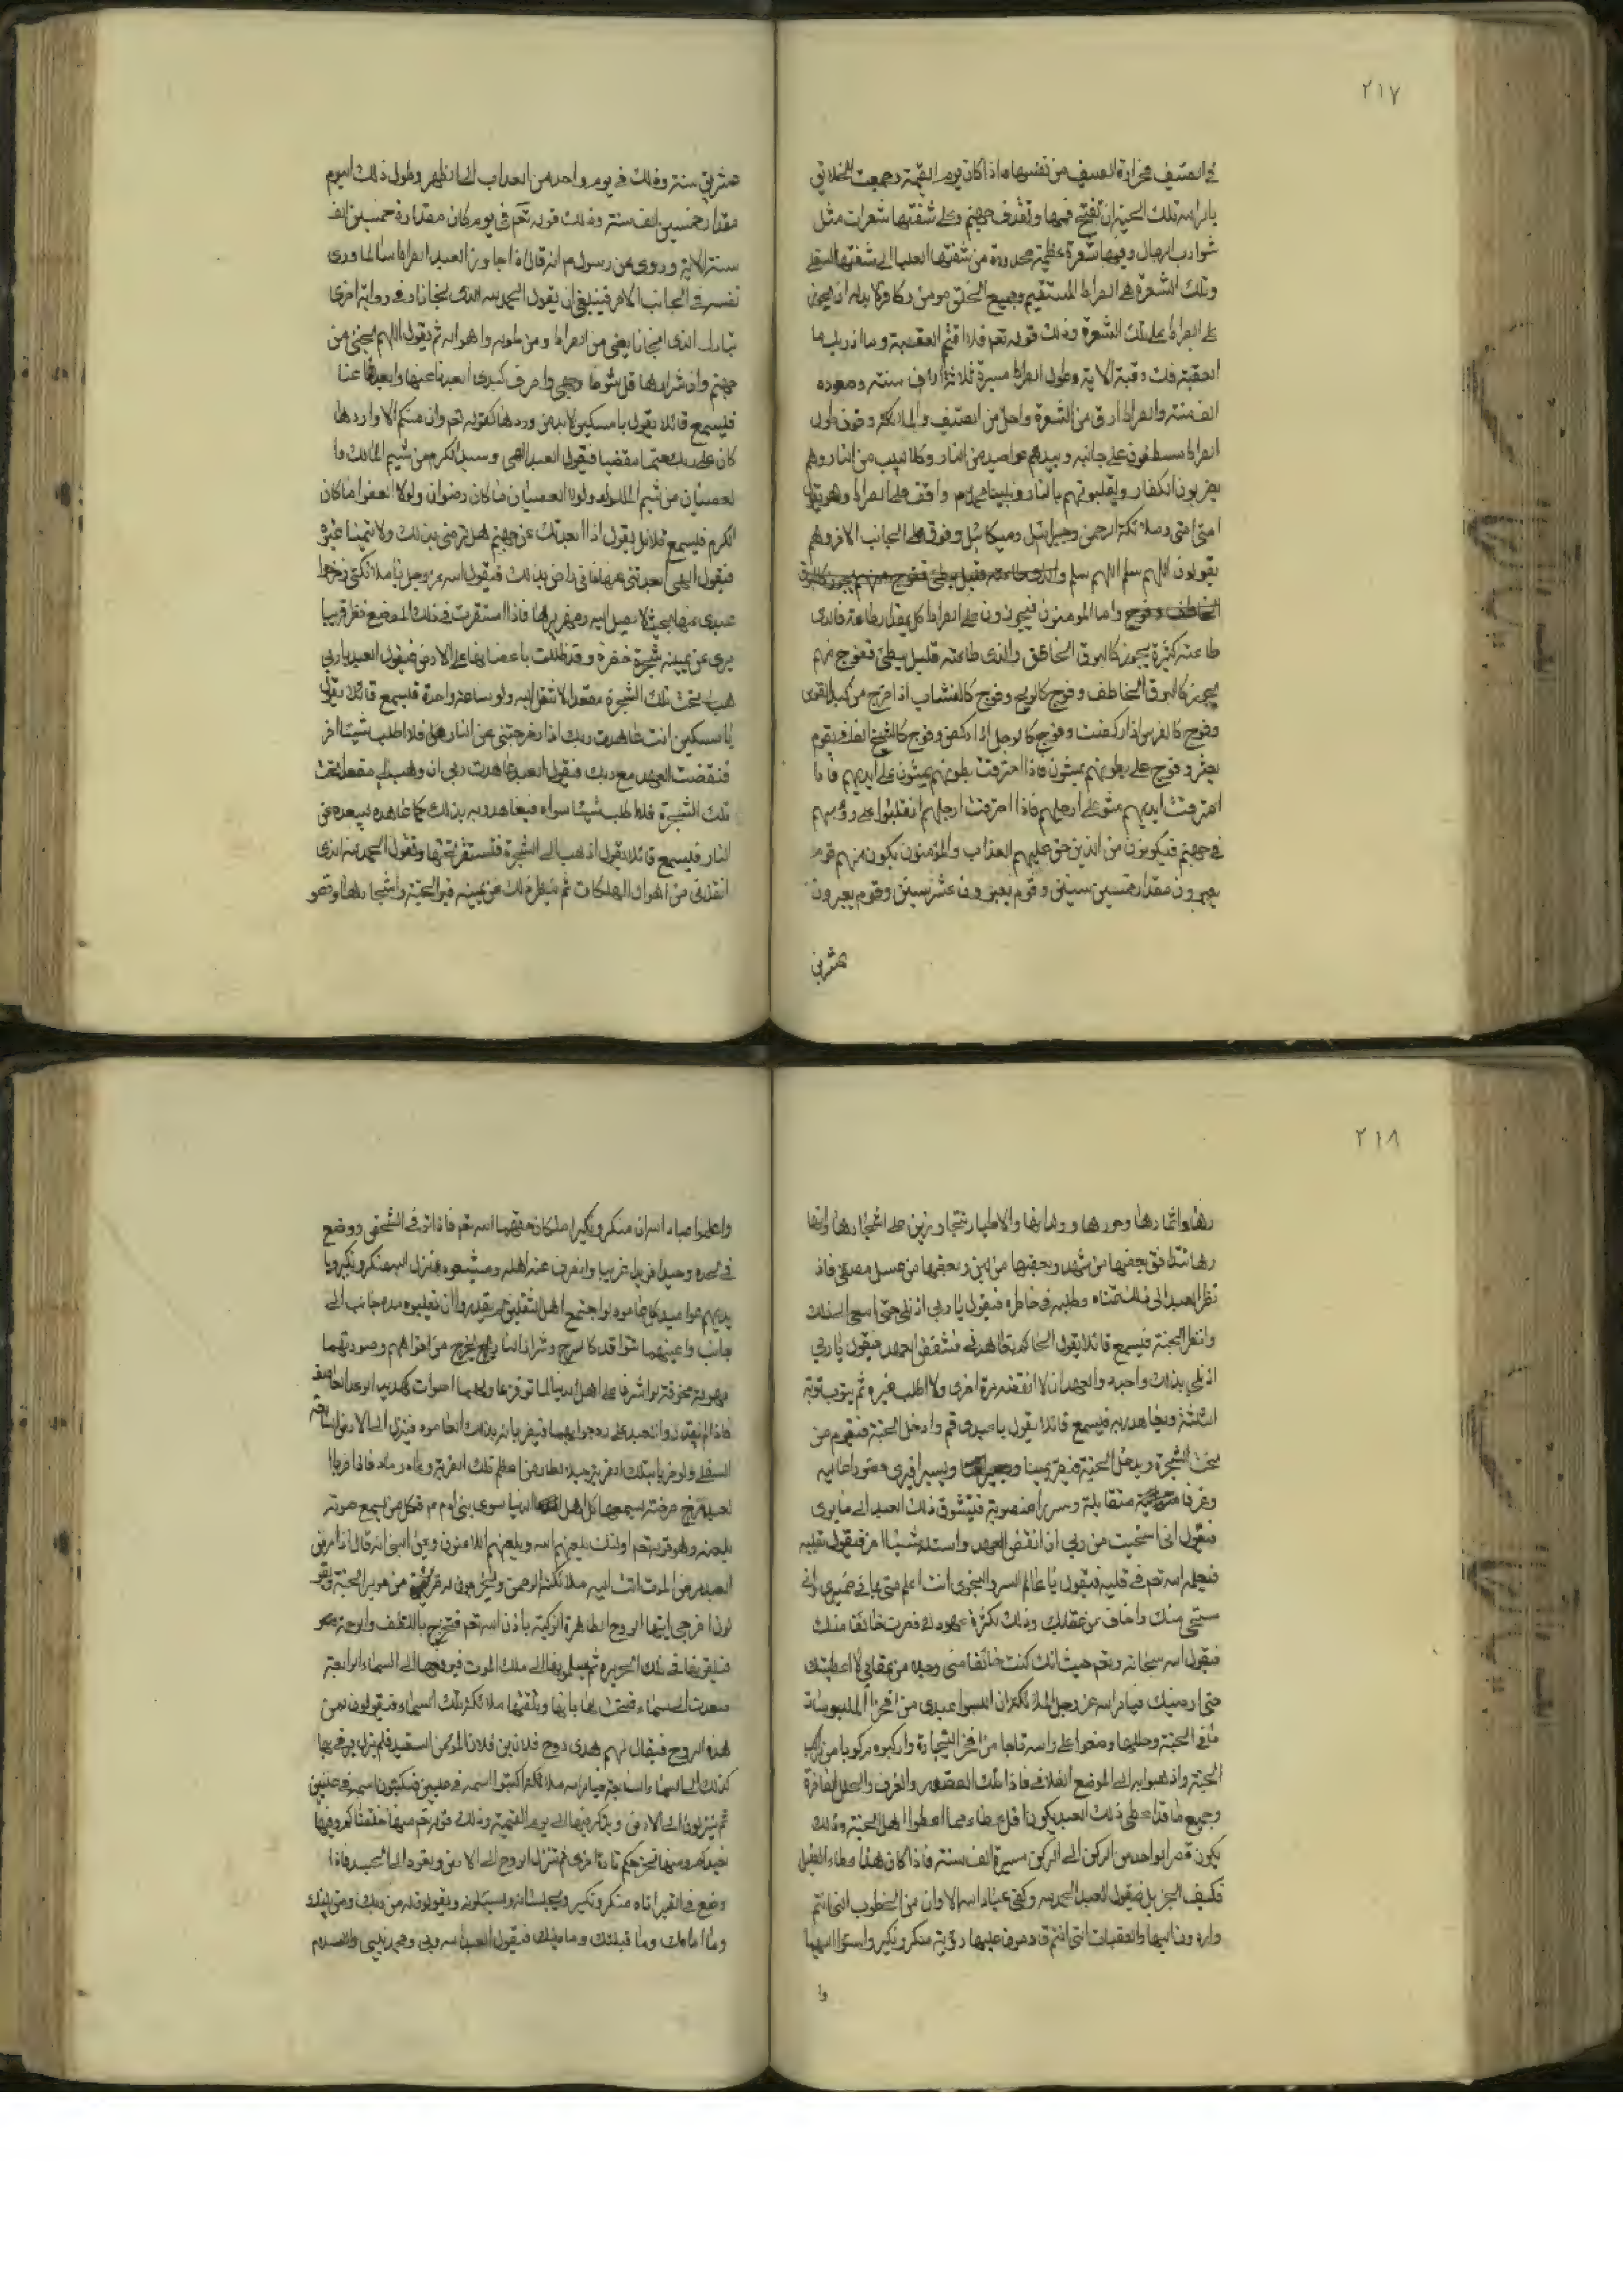 ٢١٧
في الصيف حرارة الصيف من نفسها فاذا كان يوم القيمة وجمعت الخلائق
يامر الله تلك الحية ان تفتح فمها وتقذف جهنم وعلى شفتها شعرات مثل
شوارب الرجال وفيها شعرة عظيمة ممدودة من شفتها العليا الى شفتها السفلى
وتلك الشعرة هي الصراط المستقيم وجميع الخلق مومن وكافر لا بد له ان يجوز
على الصراط على تلك الشعرة وذلك قوله تعم فلا اقتحم العقبة وما ادريك ما
العقبة فك رقبة الاية وطول الصراط مسيرة ثلاثة الاف سنة وصعوده
الف سنة والصراط ارق من الشعرة واحد من السيف والملائكة وقوف طول
الصراط على جانبه وبيدهم عواميد من النار وكلاليب من النار وهم
يضربون الكفار ويقلبونهم بالنار ونبينا محمد م واقف على الصراط وهو يقول
امتي امتي وملائكة الرحمن وجبرائيل وميكائيل وقوف على الجانب الاخر وهم
يقولون اللهم سلم اللهم سلم
واما المومنون فيجوزون على الصراط كل بمقدار طاعة فالذي
طاعته كثيرة يجوز كالبرق الخاطف والذي طاعته قليل بطئ ففوج منهم
يجوز كالبرق الخاطف وفوج كالريح وفوج كالنشاب اذا خرج من كبد القوس
وفوج كالفرس اذا ركضت وفوج كالرجل اذا ركض وفوج كالشيخ يقوم
يعثر وفوج على بطونهم يمشون فاذا احترقت بطونهم يمشون على ايديهم فاذا
احترقت ايديهم مشوا على ارجلهم فاذا احترقت ارجلهم انقلبوا على رؤسهم
في جهنم فيكونون من الذين حق عليهم العذاب والمؤمنون يكون منهم قوم
يعبرون مقدار خمسين سنين وقوم يعبرون عشر سنين وقوم يعبرون
عشرين
عشرين سنة وذلك في يوم واحد من العذاب الى الظهر وطول ذلك اليوم
مقدار خمسين الف سنة وذلك قوله تعم في يوم كان مقداره خمسين الف
سنة الاية وروي عن رسول م انه قال اذا جاوز العبد الصراط سالما وراى
نفسه في الجانب الاخر فينبغي ان يقول الحمد لله الذي نجانا وفي رواية اخرى
تبارك الذي نجانا يعني من الصراط ومن طوله واهواله ثم يقول اللهم نجني من
جهنم وان شرارها قل شوها وجهي واحرق كبدي ابعدنا عنها وابعدها عنا
فيسمع قائلا يقول يا مسكين لا بد من وردها كقوله تعم وان منكم الا واردها
كان على ربك حتما مقضيا فيقول العبد الهي وسيدي الكرم من شيم المالك وا
لعصيان من شيم المملوك ولولا العصيان ما كان رضوان ولولا العفو ما كان
الكرم فيسمع قائل يقول اذا ابعدتك عن جهنم هل ترضى بذلك ولا تتمنا غيره
فيقول الهي ابعدتني عنها فاني راض بذلك فيقول الله عز وجل يا ملائكتي زحزحوا
عبدي عنها بحيث لا يصل اليه زمهريرها فاذا استقرت في ذلك الموضع نظر قريبا
يرى عن يمينه شجرة خضرة وقد ظلت باغصانها على الارض فيقول العبد يا ربي
هب لي تحت تلك الشجرة مقعدا لانتقل اليه ولو ساعة واحدة فيسمع قائلا يقول
يا مسكين انت عاهدت ربك اذا زحزحتني عن النار هل فلا اطلب شيئا اخر
فنقضت العهد مع ربك فيقول العبد عاهدت ربي ان وهب لي مقعدا تحت
تلك الشجرة فلا اطلب شيئا سواه فيعاهد ربه بذلك كما عاهده يبعده عن
النار فيسمع قائلا يقول اذهب الى الشجرة فتستقر تحتها وتقول الحمد لله الذي
انقذني من اهوال الهلكات ثم ينظر ذلك عن يمينه فيرا الجنة واشجارها وقصو
٢١٨
رها واثمارها وحورها وولدانها والاطيار تتجاوزين على اشجارها وانها
رها تتدفق بعضها من شهد وبعضها من لبن وبعضها من عسل مصفى فاذ
نظر العبد الى ذلك تمناه وطلبه في خاطره فيقول يا ربي اذن لي حتى اسعى الى ذلك
وانظر الجنة فيسمع قائلا يقول الحاكم تعاهدني فتنقض العهد فيقول يا ربي
اذن لي بذلك واحبه والعهد ان لا انقضه مرة اخرى ولا اطلب غيره ثم يتوب توبة
الثالثة ويعاهد ربه فيسمع قائلا يقول يا عبدي قم وادخل الجنة فيقوم من
تحت الشجرة ويدخل الجنة فينظر يمينا ويسيرا فيرى قصورا عالية
وغرفا متقابلة وسررا منصوبة فيتشوق ذلك العبد الى ما يرى
فيقول اني استحيت من ربي ان انقض العهد واسئله شيئا اخر فيقول بقلبه
فيعلم الله تعم في قلبه فيقول يا عالم السر والنجوى انت اعلم مني بما في ضميري واني
مستحي منك واخاف من عقابك وذلك لكثرة عهودك فصرت خائفا منك
فيقول الله سبحانه وتعم حيث انك كنت خائفا مني وجيه من عقابي لاعطيتك
حتى ارضيك فيامر الله عز وجل الملائكة ان البسوا عبدي من افخر الملبوسات
ما في الجنة وحللها وضعوا على راسه تاجا من افخر التيجارة واركبوه مركوبا من
الجنة واذهبوا به الى الموضع الفلاني فاذا ملك القصور والغرف والحلل الفاخرة
وجميع ما قد اعطي ذلك العبد يكون اقل عطاء مما اعطوا اهل الجنة وذلك
يكون قصر الواحد من الركن الى الركن مسيرة الف سنة فاذا كان هذا عطاء القليل
فكيف الجزيل فيقول العبد الحمد لله وكفى عباد الله الا وان من الخطوب التي انتم
واردون اليها والعقبات التي انتم قادمون عليها رؤية منكر ونكير واستوا اليها
وا
واعلموا عباد الله ان منكر ونكير املكان خلقهما الله تعم فاذا نزل في الشخص ووضع
في لحده وحيدا فريدا غريبا وانصرف عنه اهله ومشيعوه ينزل اليه منكر ونكير وبا
يديهم عواميد كل عاموه لو اجتمع اهل الثقلين لم يقدروا ان تقلبوه من جانب الى
جانب واعينهما تتواقد كالسرج وشرار النار يخرج من افواههم وصورتهما
مهوبة مخوفة لو اشرفا على اهل الدنيا لماتو فزعا ولهما اصوات كهديد الرعد القاصف
فاذا لم يقدروا العبد على رد جوابهما فيضربانه بذلك العاموه فينزل الى الارض السابعة
السفلى ولو ضربا بتلك الضربة جبلا لطار من اعظم تلك الضربة وعاد رمادا فاذا ضربا
لعبد صرخ صرخة يسمعها كل اهل الدنيا سوى بني ادم م فكل من يسمع صوته
يلعنه وهو قوله تعم اولئك يلعنهم الله ويلعنهم اللاعنون وعن النبي انه قال اذا مرض
العبد مرض الموت اتت اليه ملائكة الرحمن من حرير الجنة ويقو
لون اخرجي ايتها الروح الطاهرة الزكية باذن الله تعم فتخرج باللطف والرحمة
فيلقونها في تلك الحريرة ثم يسلمونها الى ملك الموت فيرفعها الى السماء الرابعة
صعدت السماء فتفتح لها بابها ويتلقتها ملائكة تلك السماء فيقولون لمن
هذه الروح فيقال لهم هذي روح فلان بن فلان المؤمن السعيد فلم يزل يرقى بها
كذلك الى السماء السابعة فيامر الله ملائكة اكتبوا اسمه في عليين فيكتبون اسمه في عليين
ثم ينزلون الى الارض ويذكر فيها الى يوم القيمة وذلك قوله تعم منها خلقناكم وفيها
نعيدكم ومنها نخرجكم تارة اخرى ثم تنزل الروح الى الارض ويعود الى الجسد فاذا
وضع في القبر اتاه منكر ونكير ويجلسانه ويسئلونه ويقولون له من ربك ومن نبيك
وما امامك وما قبلتك وما دينك فيقول العبد الله ربي ومحمد نبيي والاسلام